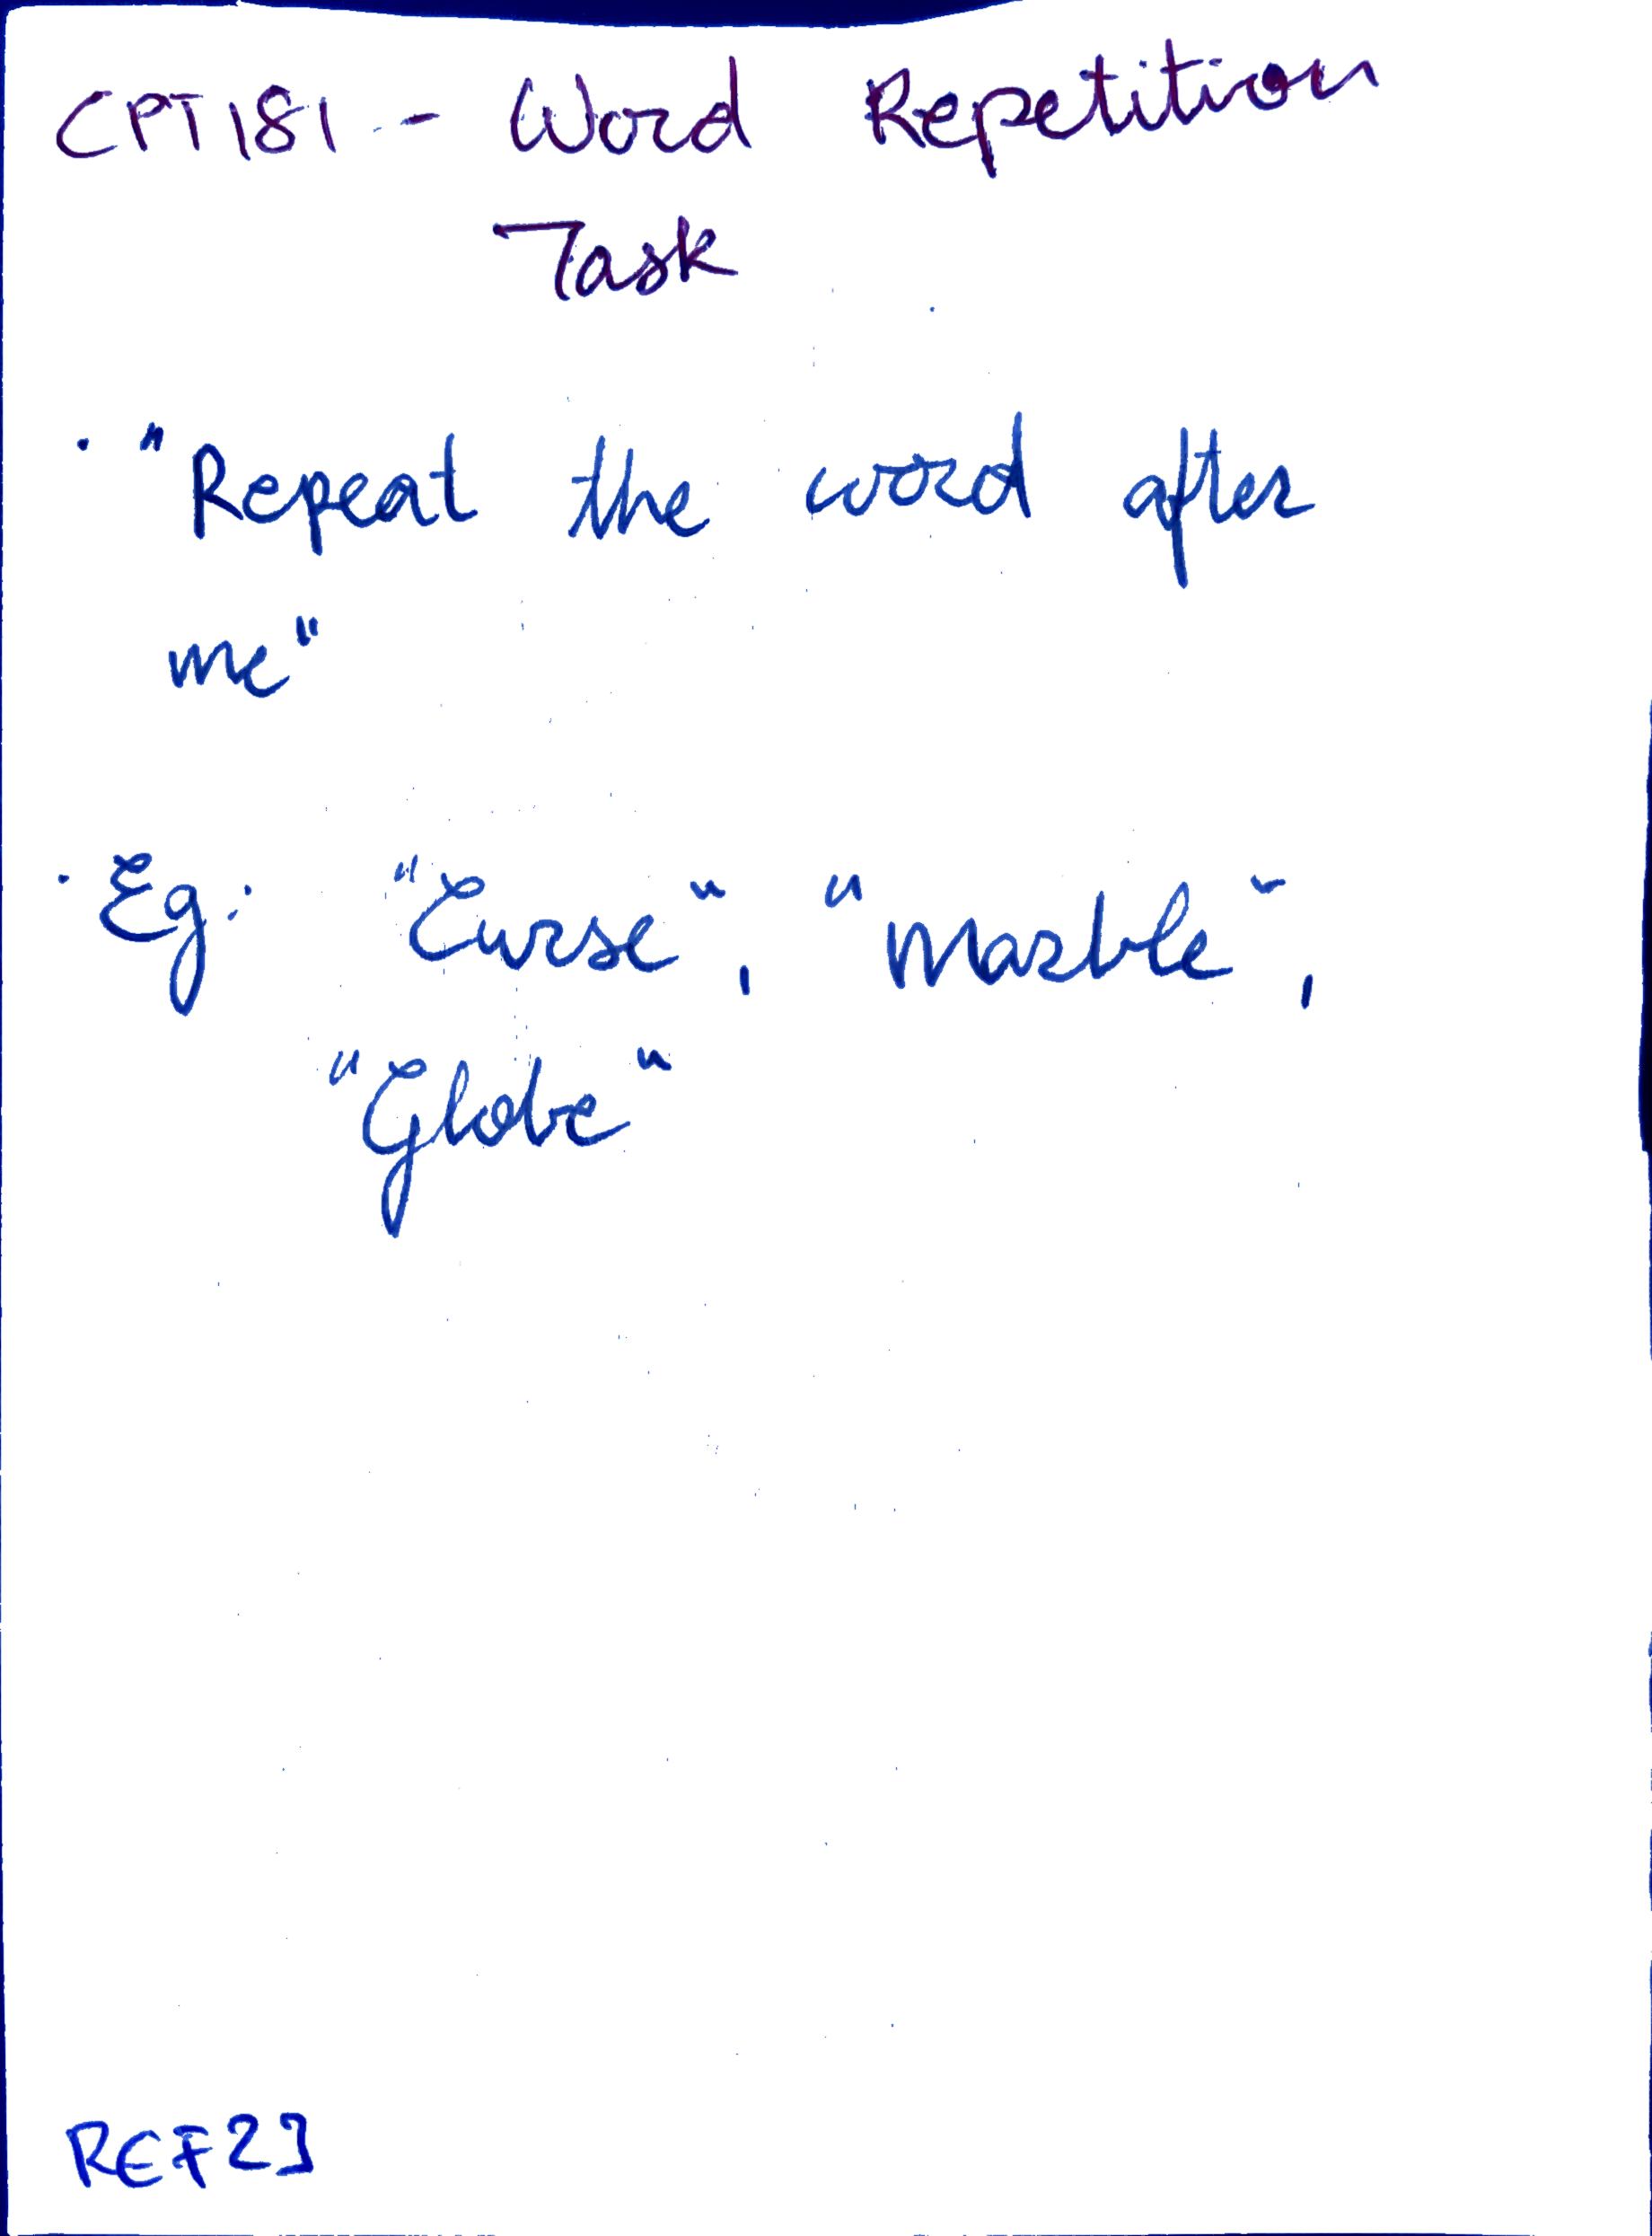 CPT181 - Word Repetition
Task
· "Repeat the word after
me"
· Eg: "Curse", "Marble",
"Globe"
REF23